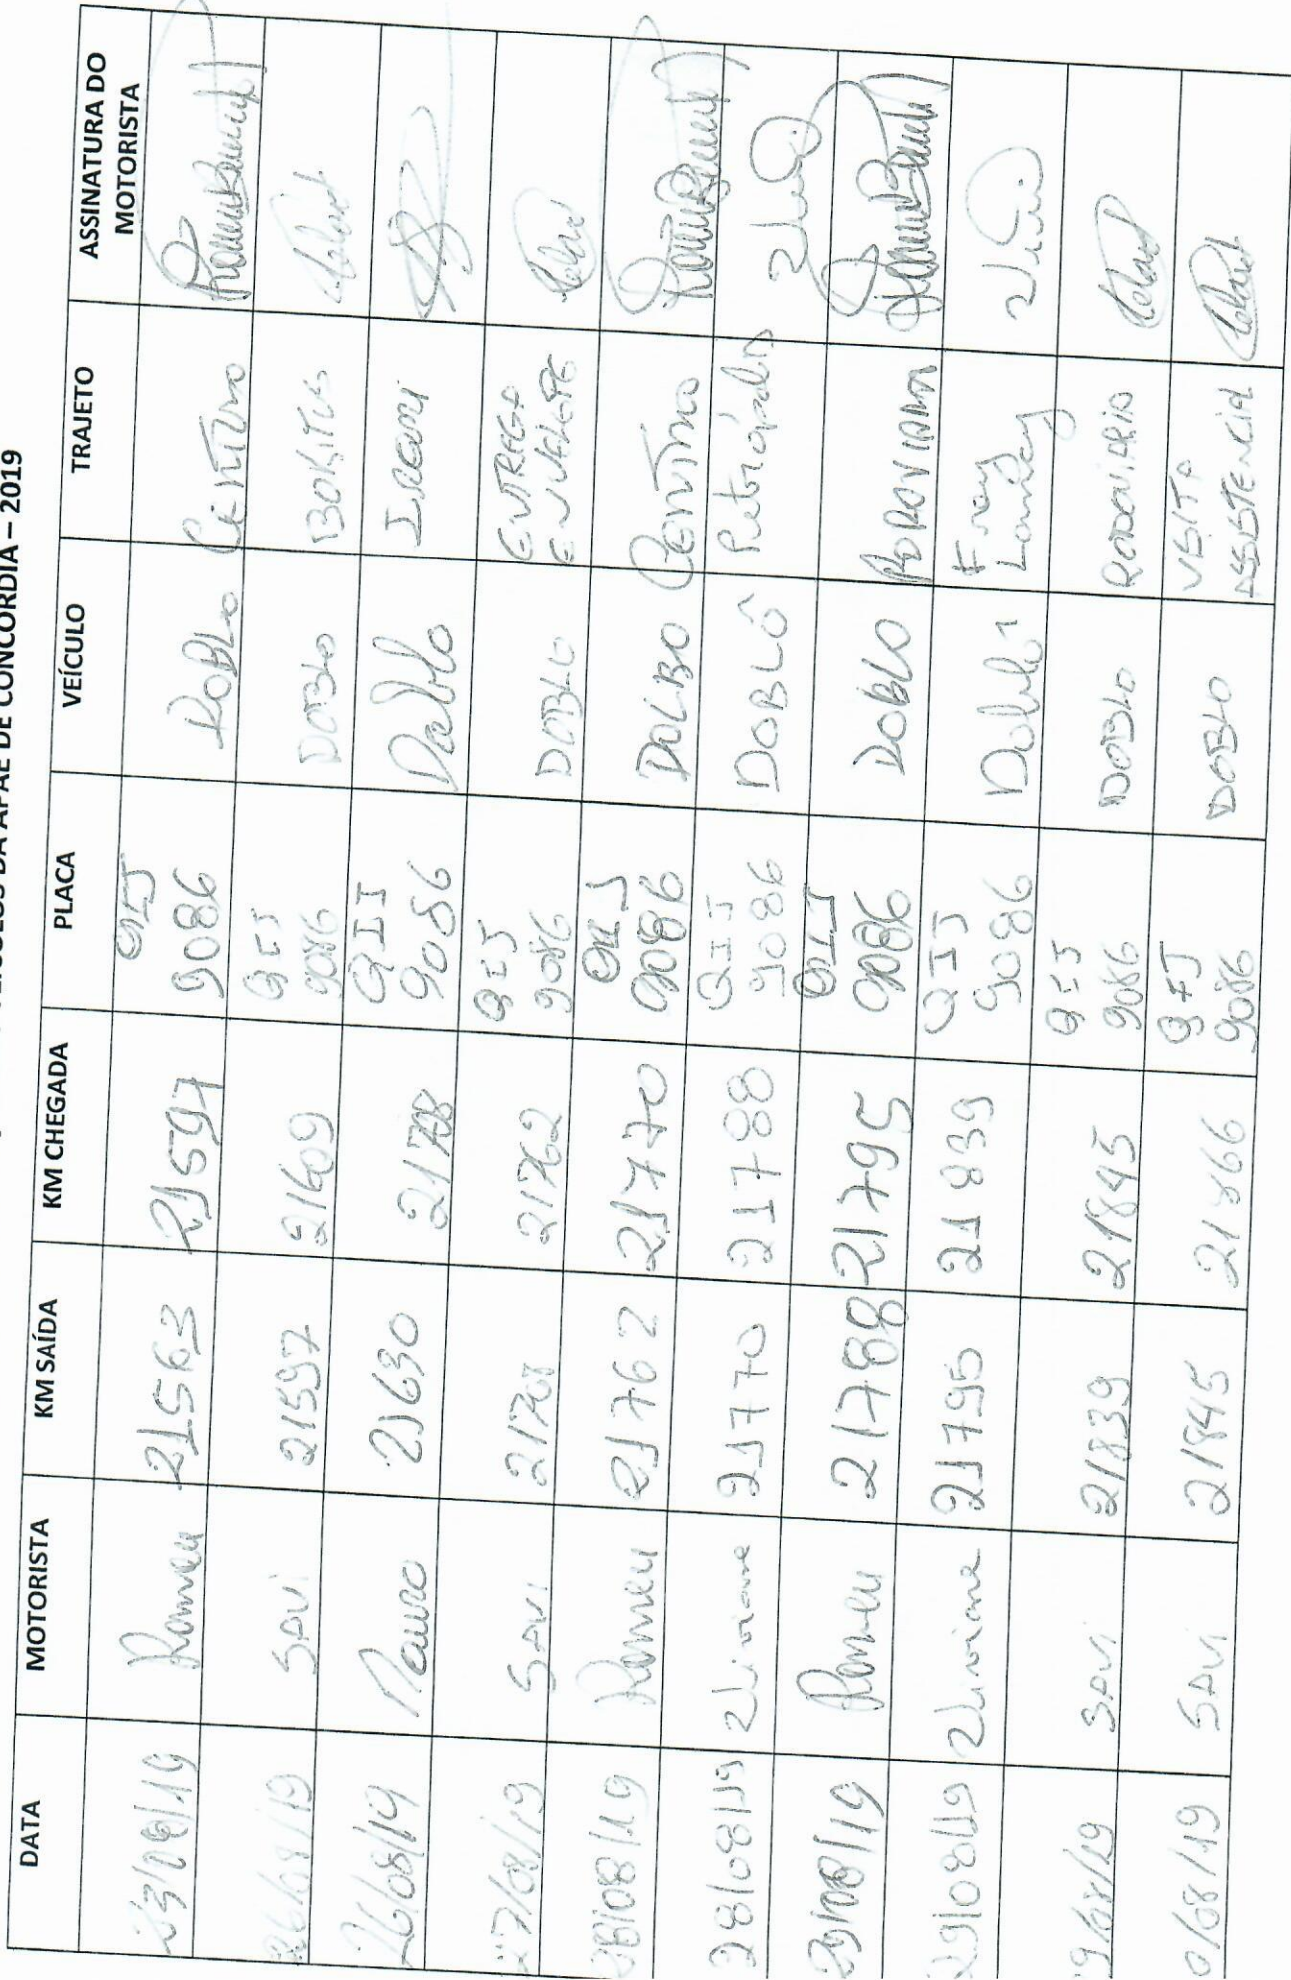 VEÍCULOS DA APAE DE CONCÓRDIA – 2019
DATA MOTORISTA KM SAÍDA KM CHEGADA PLACA VEÍCULO TRAJETO ASSINATURA DO MOTORISTA
23/08/19 Romeu 21563 21597 QIJ 9086 DOBLO Centro
26/08/19 SAVI 21597 21609 QIJ 9086 DOBLO
26/08/19 Mauro 21630 21708 QII 9086 Doblo Irani
27/08/19 SAVI 21708 21762 QIJ 9086 DOBLO ENTREGA
28/08/19 Romeu 21762 21770 9086 DOLBO Centro
28/08/19 Viviane 21770 21788 QIJ 9086 DOBLÔ Petrópolis
29/08/19 Romeu 21788 21795 QIJ 9086 DOBLO
29/08/19 Viviane 21795 21839 QIJ 9086 Doblo Frey
9/08/19 SAVI 21839 21845 QIJ 9086 DOBLO
0/08/19 SAVI 21845 21866 QIJ 9086 DOBLO VISITA ASSISTENCIAL